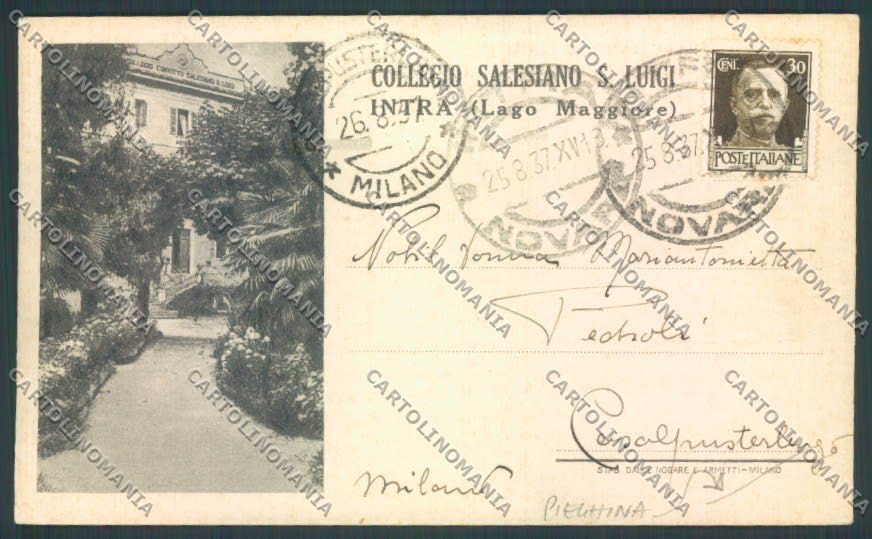 COLLEGIO CONVITTO SALESIANO S. LUIGI
COLLEGIO SALESIANO S. LUIGI
INTRA (Lago Maggiore)
26.8.37
* MILANO *
25.8.37.XV
NOVARA
25.8.37.XV
NOVARA
CENT. 30
POSTE ITALIANE
Nobil Donna Mariantonietta
Pedroli
Casalpusterlengo
Milano
STAB. DALLE NOGARE E ARMETTI - MILANO
PIEGHINA
CARTOLINOMANIA